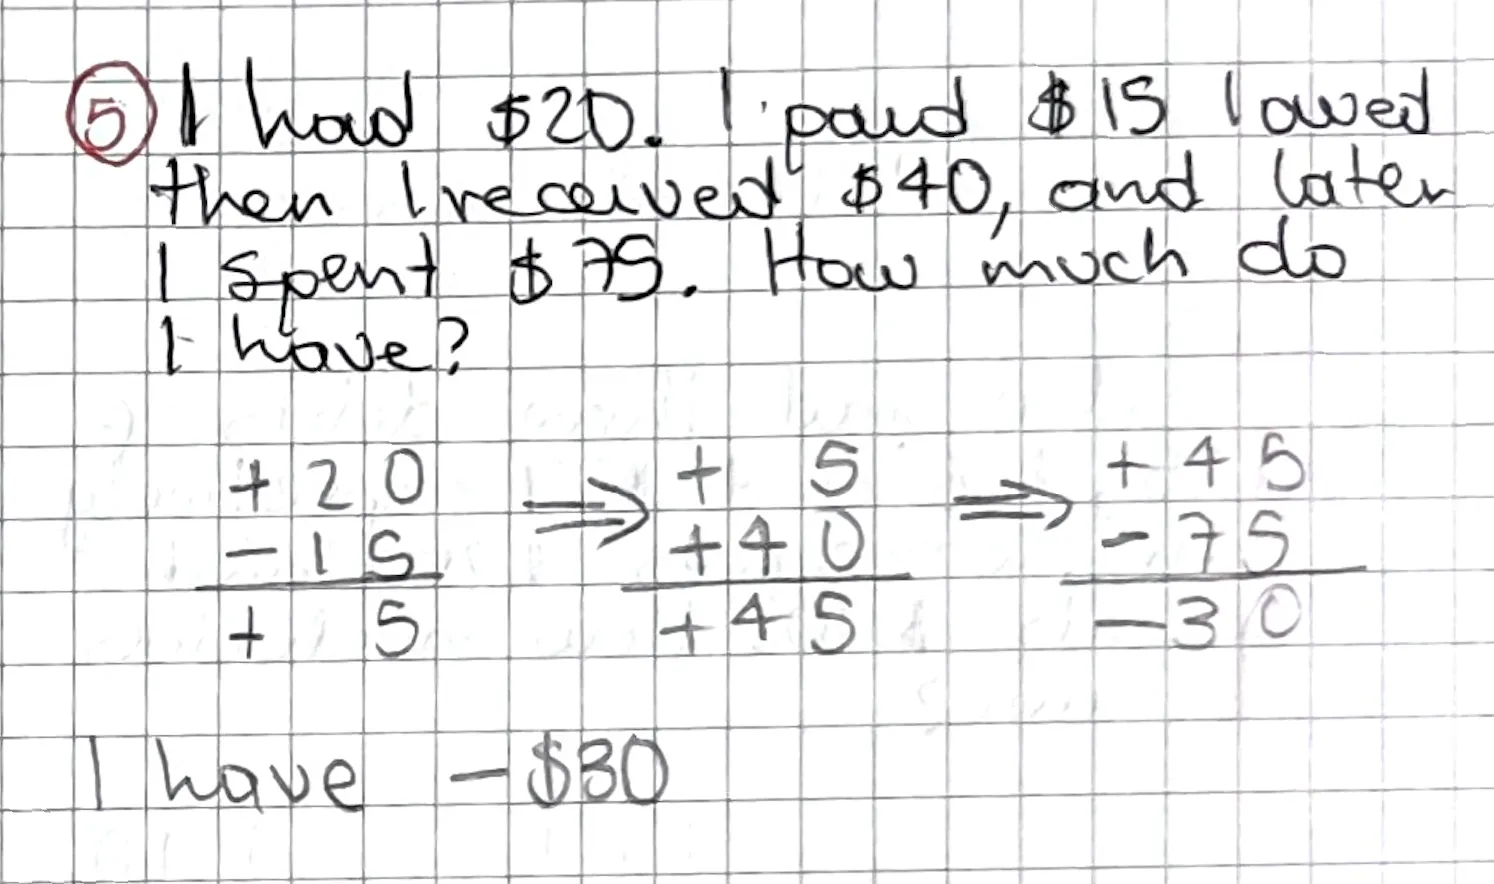 ⑤ I had $20. I paid $15 I owed
then I received $40, and later
I spent $75. How much do
I have?
+20 ⇒ + 5 ⇒ +45
-15 +40 -75
+ 5 +45 -30
I have -$30